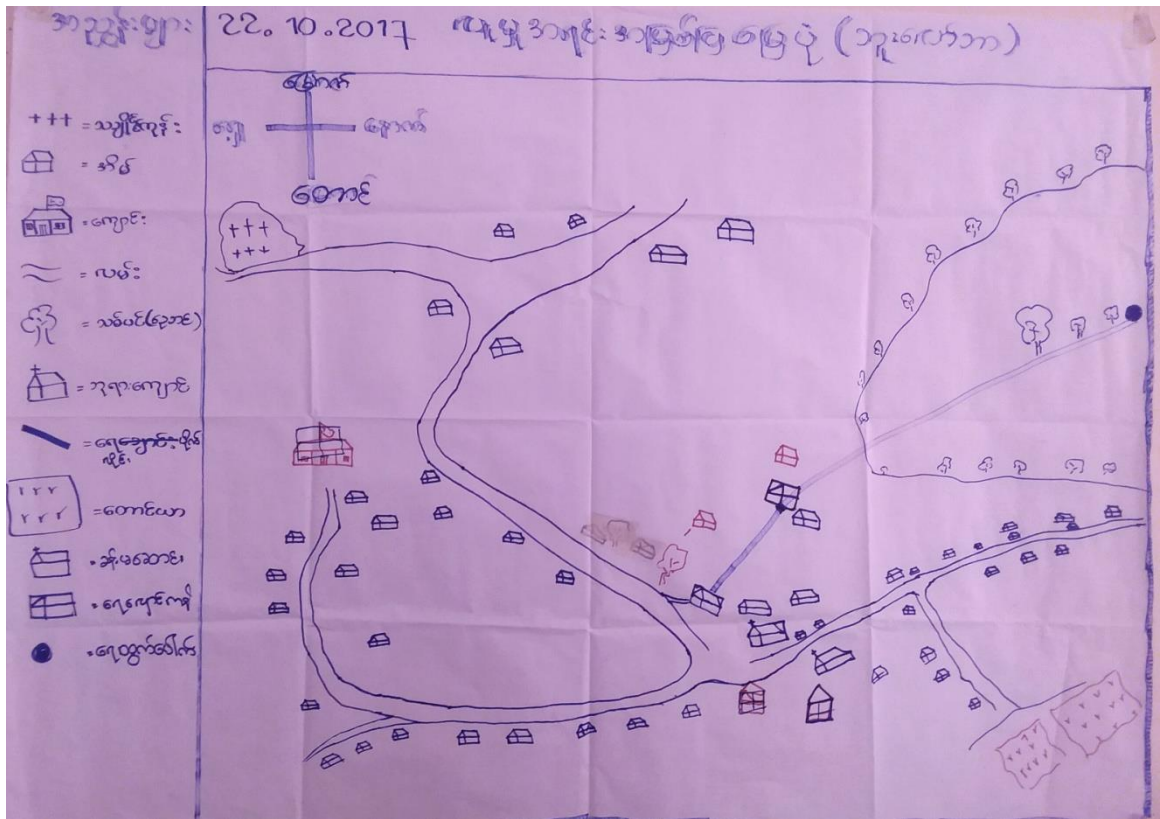 အညွှန်းများ
22.10.2017 လူမှုအရင်းအမြစ်ပြမြေပုံ (ဘူးလော်ဘာ)
မြောက်
အရှေ့ အနောက်
တောင်
+++ = သင်္ချိုင်းကုန်း
= အိမ်
= ကျောင်း
= လမ်း
= သစ်ပင်(ညောင်)
= ဘုရားကျောင်း
= တောင်ယာ
= ရေလှောင်ကန်
= ရေထွက်ပေါက်